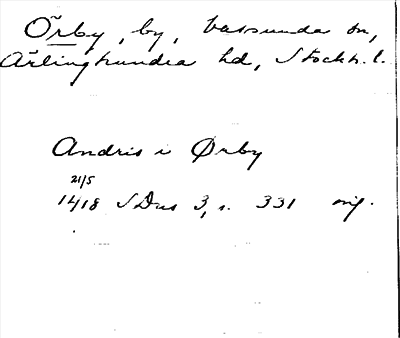 Örby, by, Vassunda sn,
Ärlinghundra hd, Stockh. l.
Andris i Ørby
21/5
1418 SDns 3, s. 331 orig.